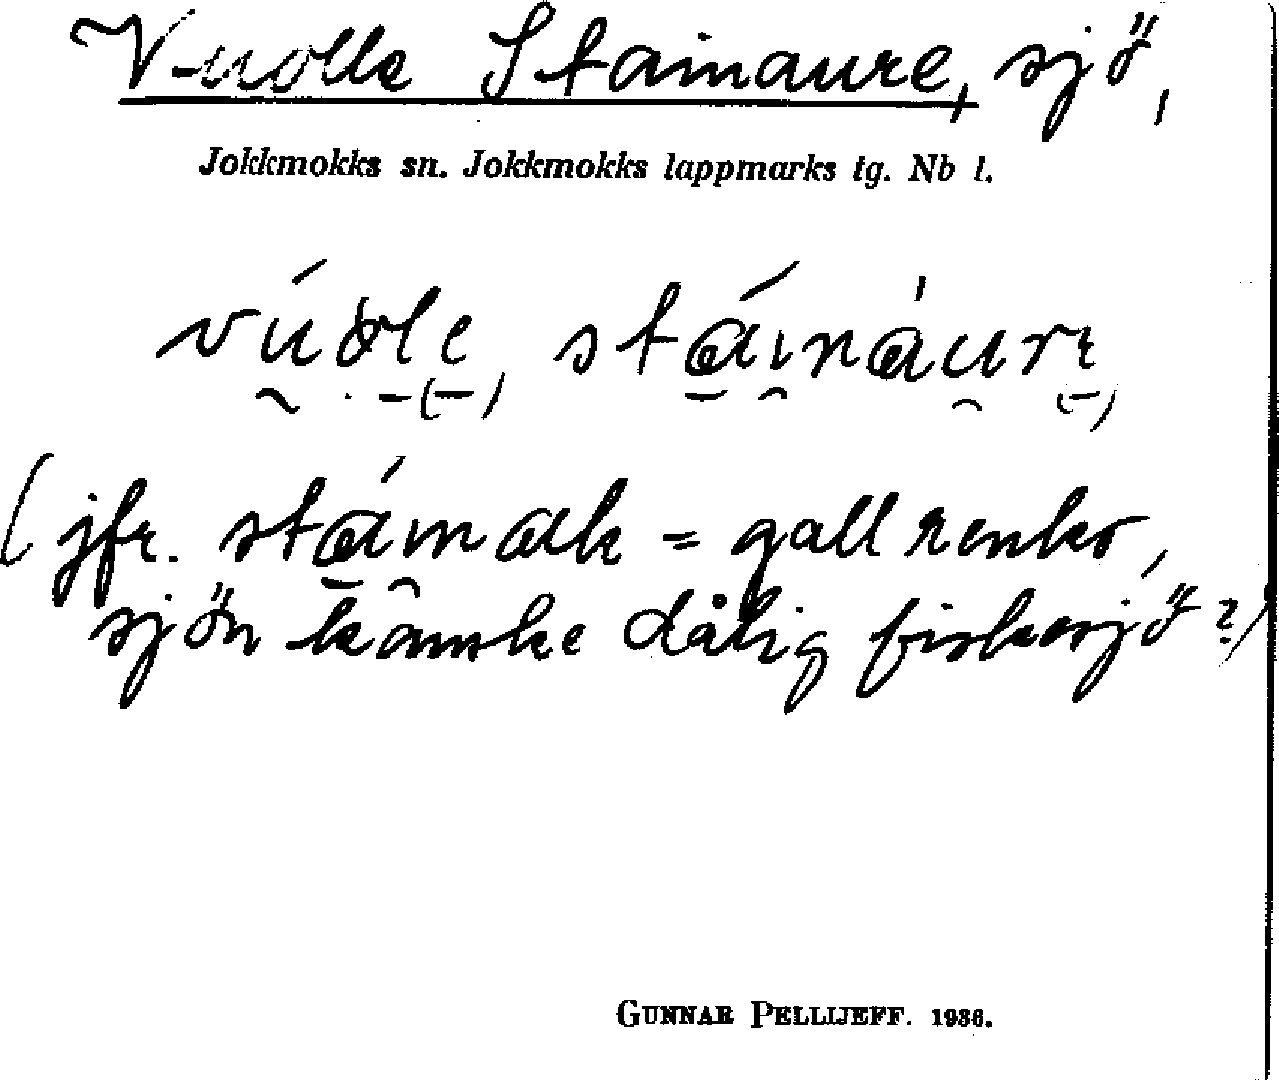 Vuolle Stainaure, sjö,
Jokkmokks sn. Jokkmokks lappmarks tg. Nb l.
vúole, stáináure
(jfr. stáinak = gall renko,
sjön kanske dålig fiskesjö?)
GUNNAR PELLIJEFF. 1936.